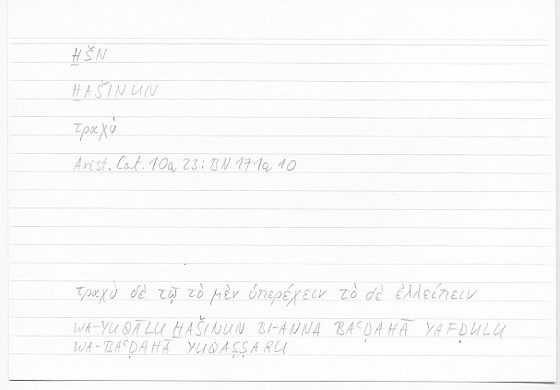 H̱ŠN
H̱AŠINUN
τραχύ
Arist. Cat. 10a 23; BN 171a 10
τραχὺ δὲ τῷ τὸ μὲν ὑπερέχειν τὸ δὲ ἐλλείπειν
WA-YUQĀLU H̱AŠINUN BI-ANNA BAʿḌAHĀ YAFḌULU
WA-BAʿḌAHĀ YUQAṢṢARU